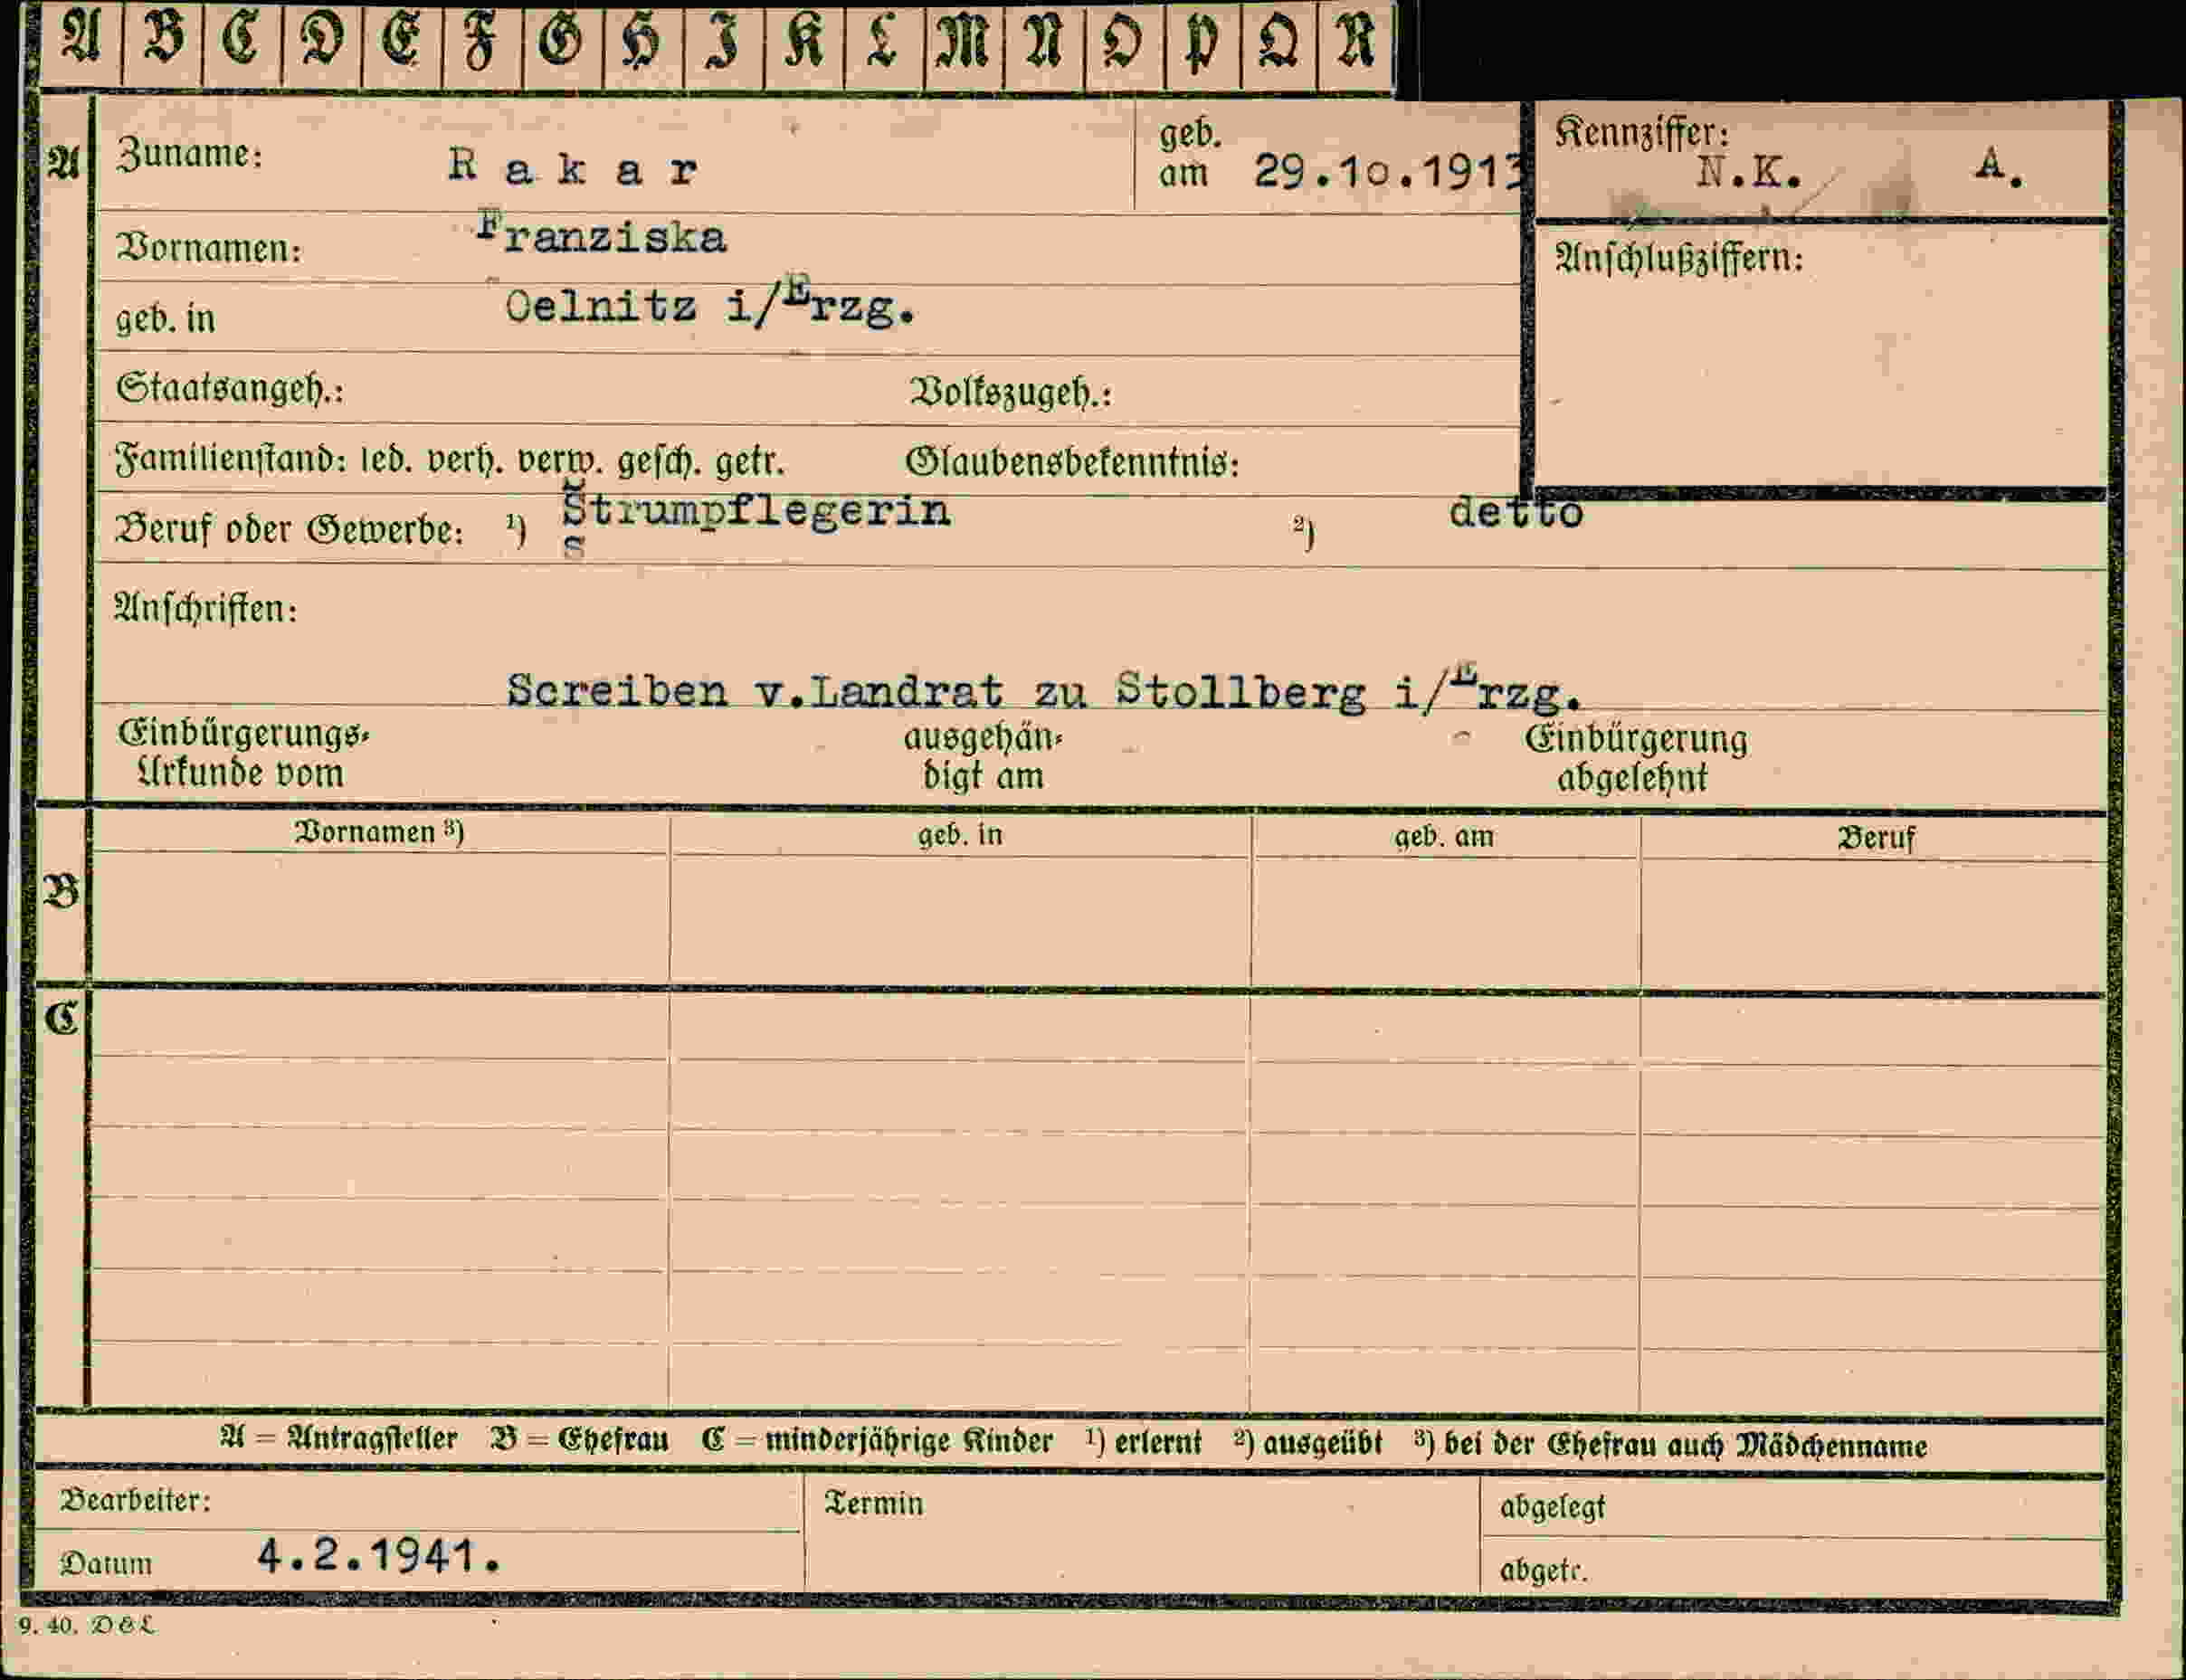 A B C D E F G H I K L M N O P Q R
A
Zuname: Rakar geb. am 29.10.1913
Kennziffer: N.K. A.
Vornamen: Franziska
Anschlußziffern:
geb. in Oelnitz i/Erzg.
Staatsangeh.: Volkszugeh.:
Familienstand: led. verh. verw. gesch. getr. Glaubensbekenntnis:
Beruf oder Gewerbe: ¹) Strumpflegerin ²) detto
s
Anschriften:
Screiben v.Landrat zu Stollberg i/Erzg.
Einbürgerungs- ausgehän- Einbürgerung
Urkunde vom digt am abgelehnt
Vornamen ³) geb. in geb. am Beruf
B
C
A = Antragsteller B = Ehefrau C = minderjährige Kinder ¹) erlernt ²) ausgeübt ³) bei der Ehefrau auch Mädchenname
Bearbeiter: Termin abgelegt
Datum 4.2.1941. abgetr.
9. 40. D & L